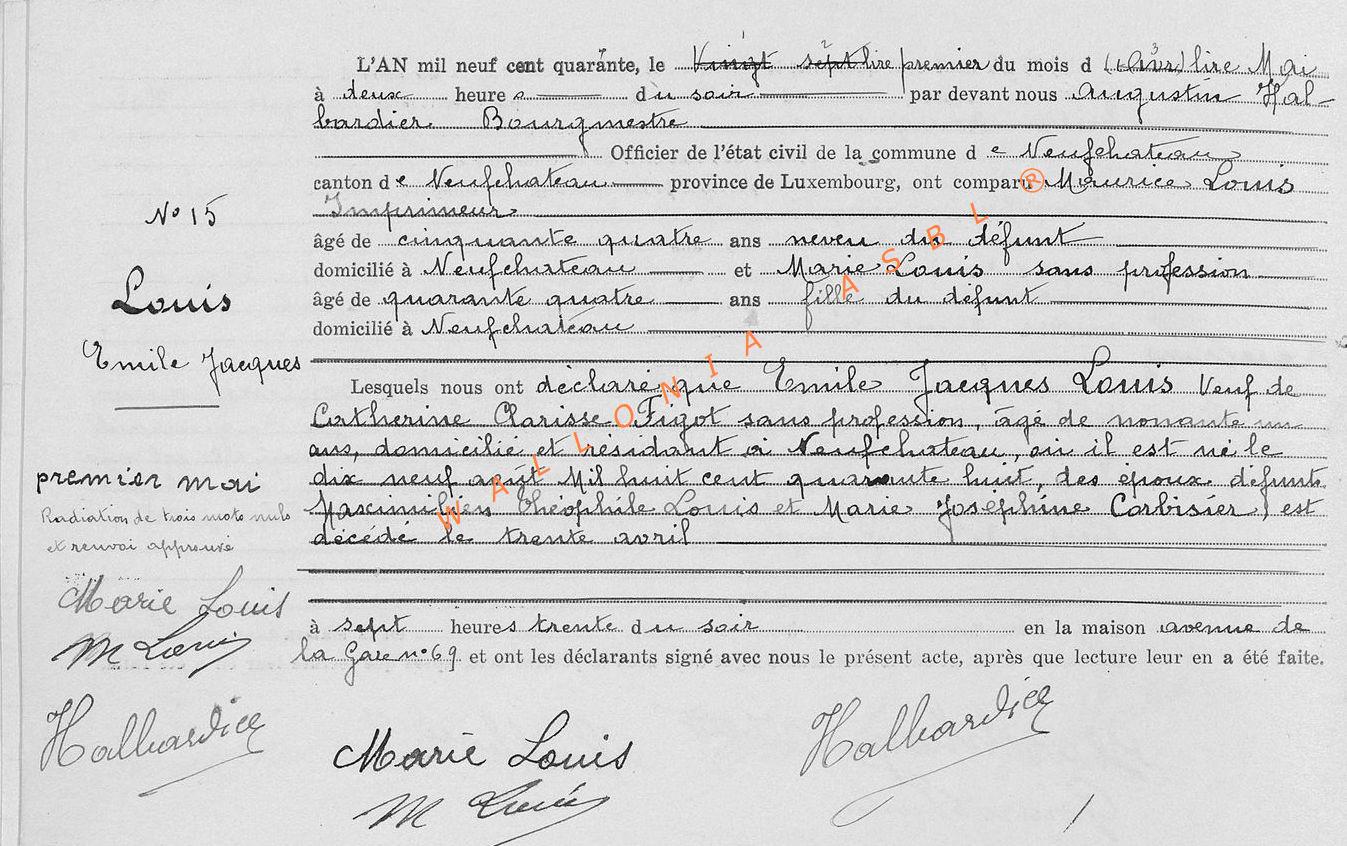 L'AN mil neuf cent quarante, le Vingt sept lire premier du mois d (Avr) lire Mai
à deux heures du soir par devant nous Augustin Hal-
bardier Bourgmestre
Officier de l'état civil de la commune de Neufchateau
canton de Neufchateau province de Luxembourg, ont comparu Maurice Louis
Imprimeur
âgé de cinquante quatre ans neveu du défunt
domicilié à Neufchateau et Marie Louis sans profession
âgé de quarante quatre ans fille du défunt
domicilié à Neufchateau
Lesquels nous ont déclaré que Emile Jacques Louis Veuf de
Catherine Clarisse Figot sans profession, âgé de nonante un
ans, domicilié et résidant à Neufchateau, où il est né le
dix neuf août Mil huit cent quarante huit, des époux défunts
Maximilien Théophile Louis et Marie Joséphine Corbisier, est
décédé le trente avril
à sept heures trente du soir en la maison avenue de
la Gare n° 69 et ont les déclarants signé avec nous le présent acte, après que lecture leur en a été faite.
Marie Louis
M Louis
Halbardier
N° 15
Louis
Emile Jacques
premier mai
Radiation de trois mots nuls
et renvoi approuvé
Marie Louis
M Louis
Halbardier
WALLONIA ASBL ®